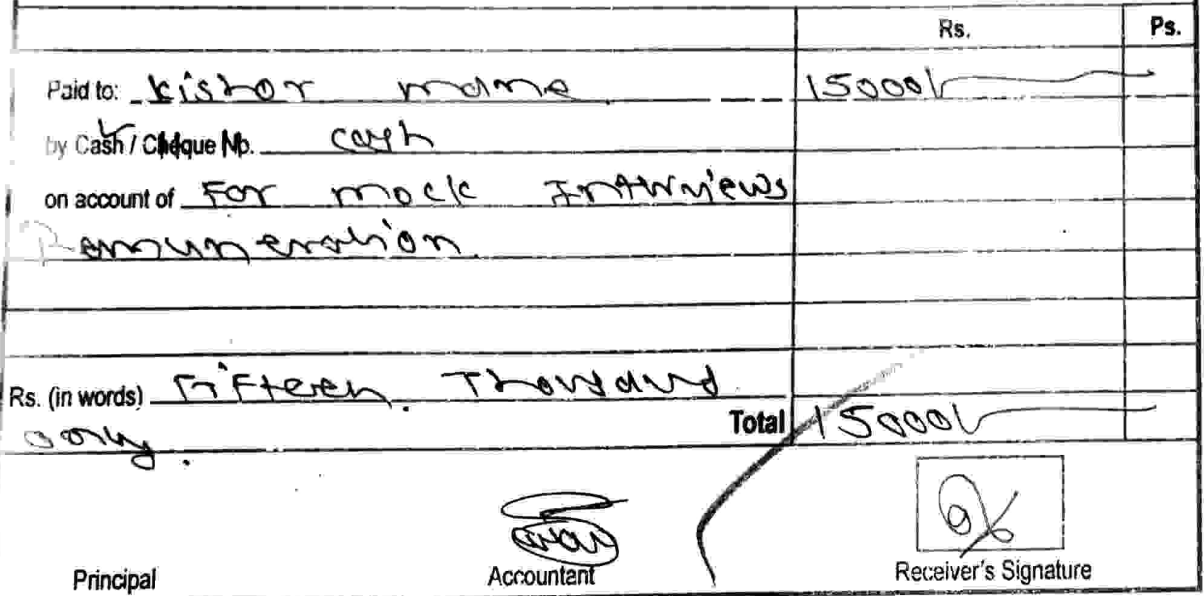 Rs. Ps.
Paid to: kishor mane 15000/-
by Cash / Cheque No. cash
on account of For mock Interviews
Remuneration.
Rs. (in words) Fifteen Thousand
only. Total 15000/-
Principal Accountant Receiver's Signature